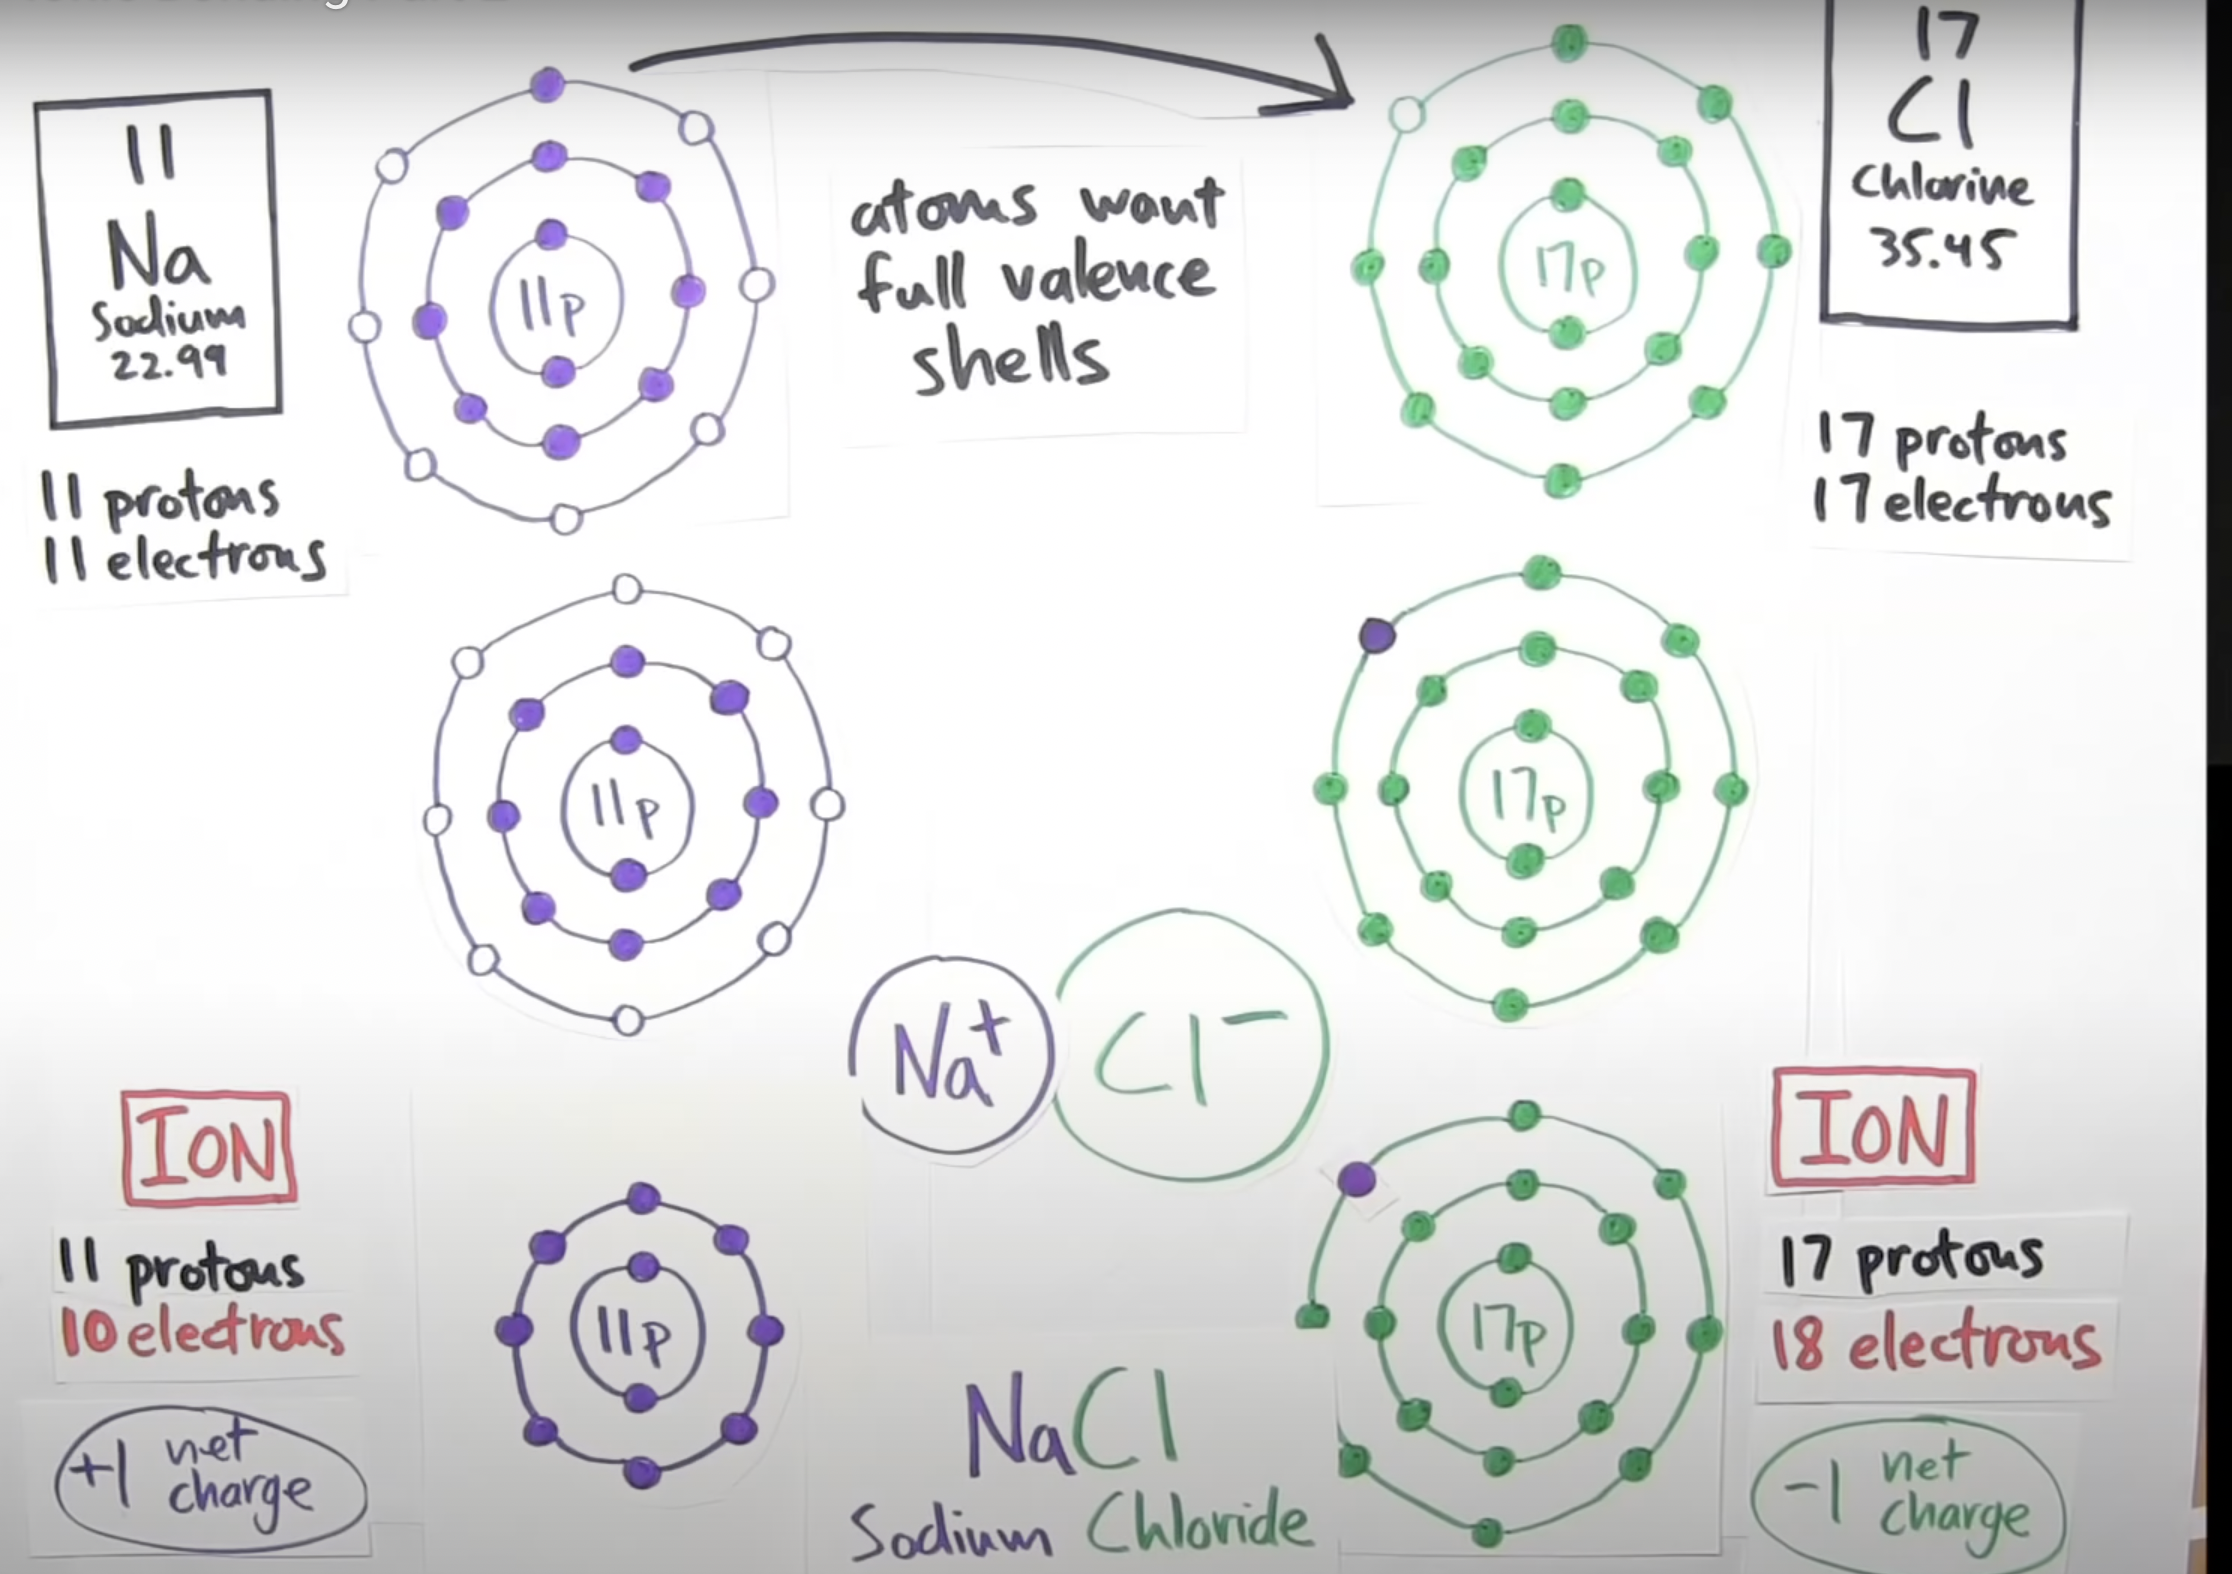 11
Na
Sodium
22.99
11 protons
11 electrons
11p
atoms want
full valence
shells
17p
17
Cl
Chlorine
35.45
17 protons
17 electrons
11p
17p
Na+
Cl−
ION
11 protons
10 electrons
+1 net
charge
11p
NaCl
Sodium Chloride
17p
ION
17 protons
18 electrons
−1 net
charge